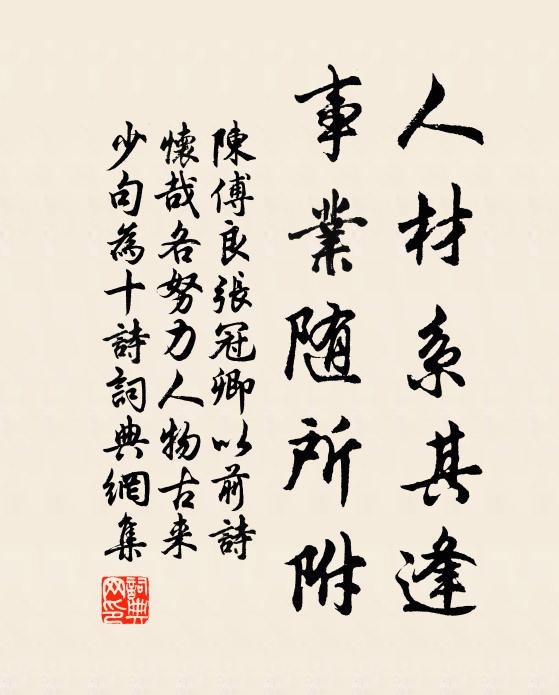 人材系其逢
事業随所附
陳傅良張冠卿以前詩
懷哉各努力人物古来
少句為十詩詞典網集
詞典網印